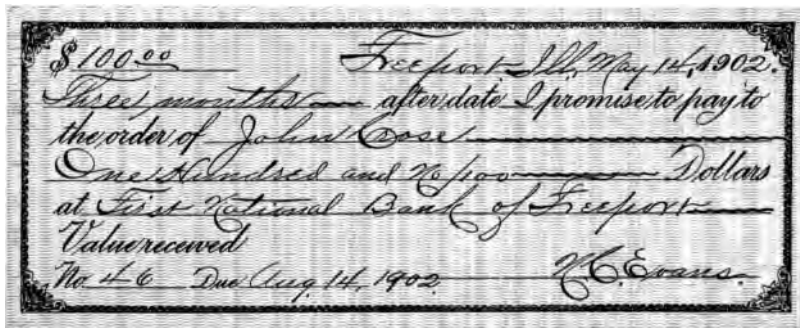 $100.00 Freeport, Ill., May 14, 1902.
Three months after date I promise to pay to
the order of John Case
One Hundred and No/100 Dollars
at First National Bank of Freeport
Value received
No. 46 Due Aug. 14, 1902. N.C. Evans.